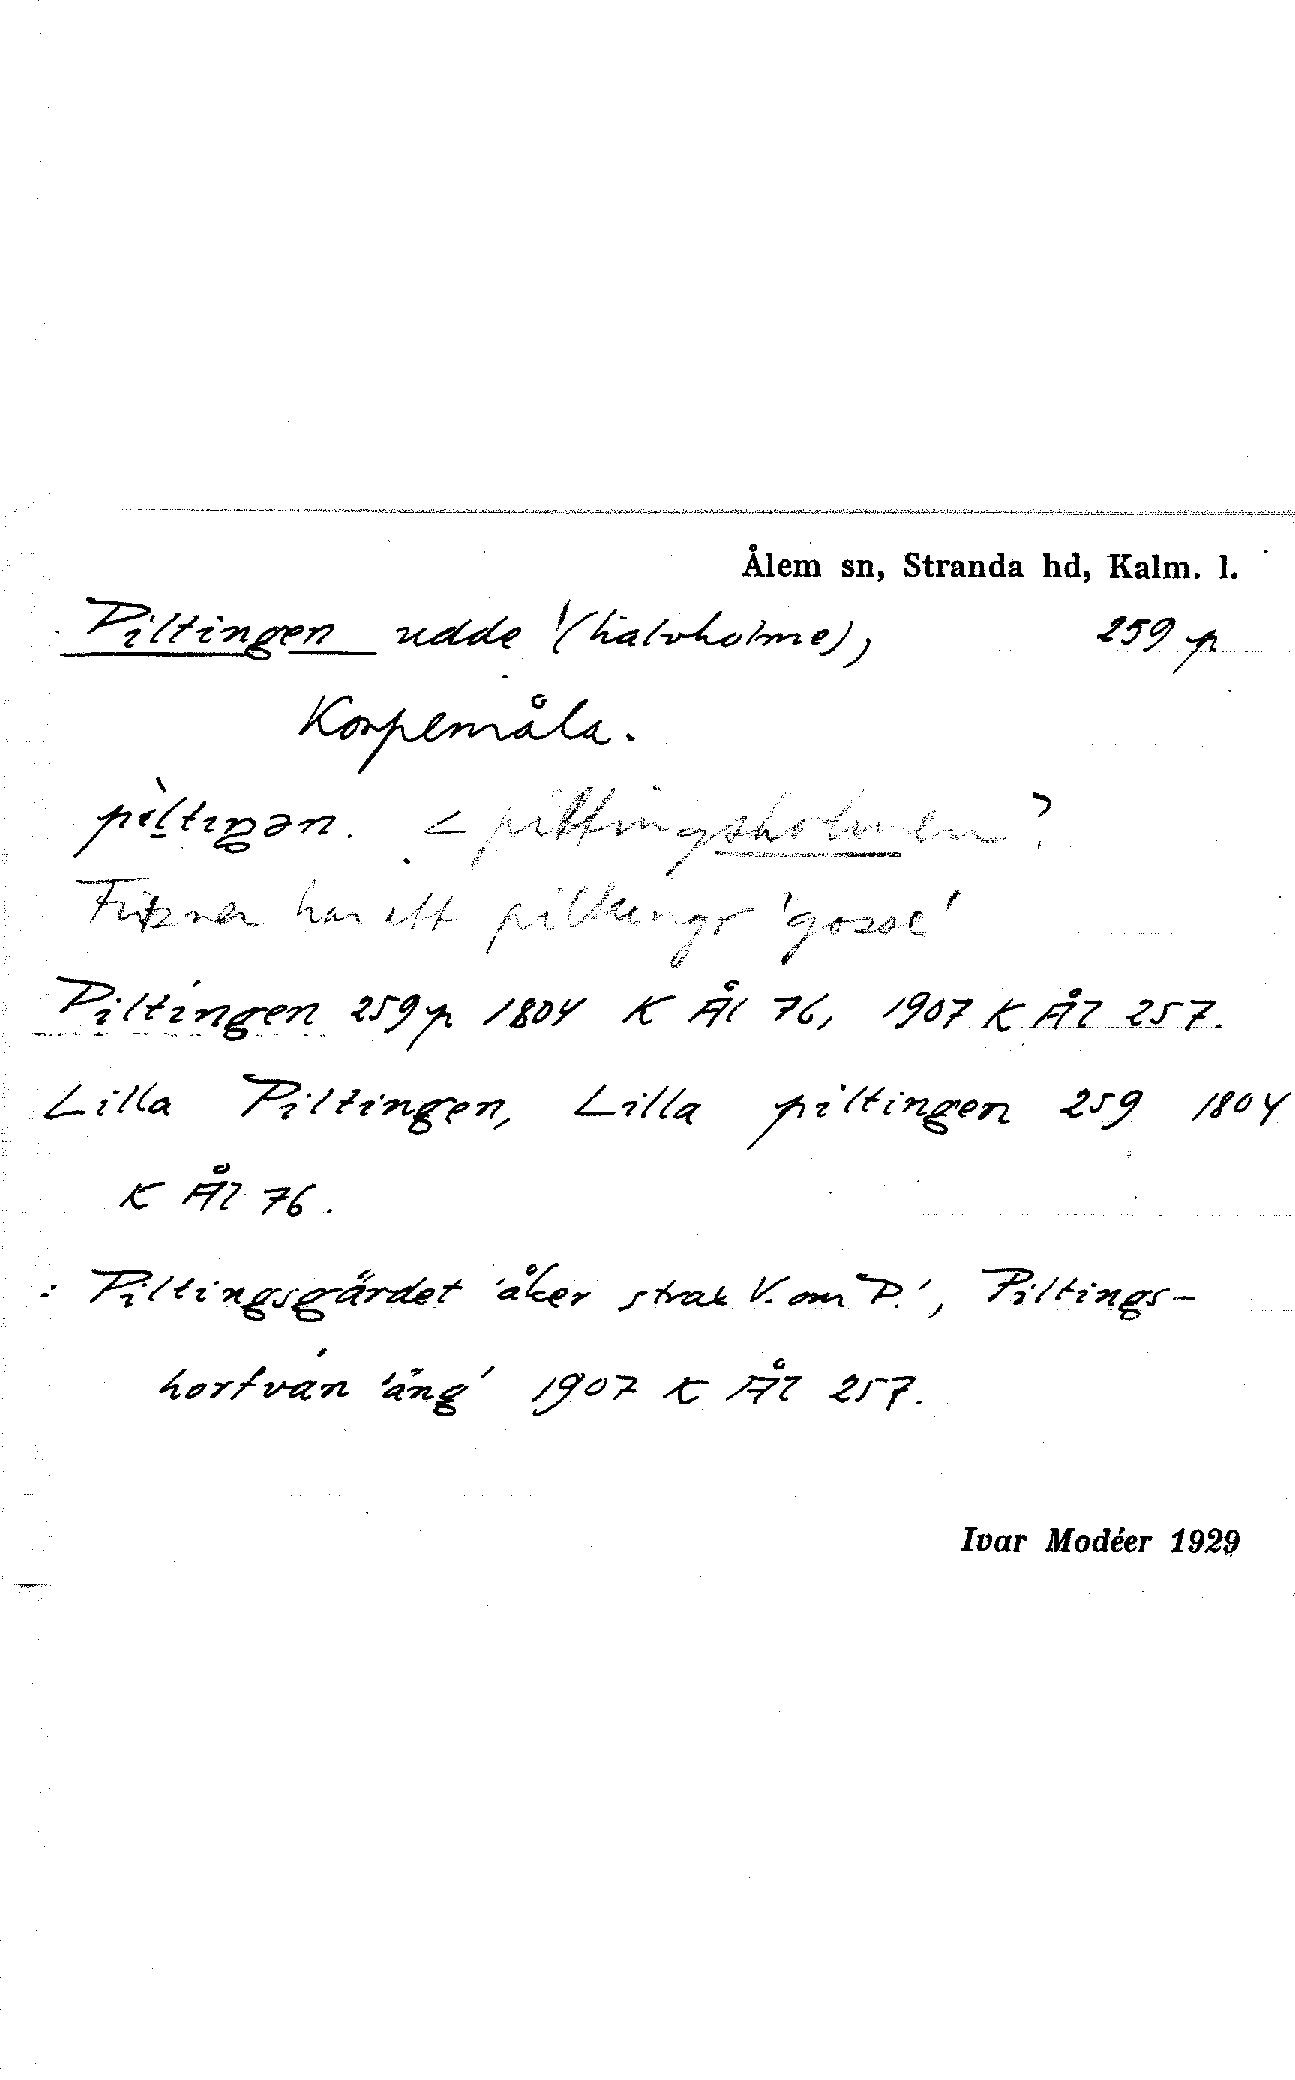 Ålem sn, Stranda hd, Kalm. l.
Piltingen udde (halvholme), 259 p
Korpemåla.
pìltiŋən. < piltingsholmen?
Fritzner har ett piltungr 'gosse'
Piltingen 259 p 1804 K Ål 76, 1907 K Ål 257.
Lilla Piltingen, Lilla piltingen 259 1804
K Ål 76.
: Piltingsgärdet 'åker strax V. om P.', Piltings-
hortvan 'äng' 1907 K Ål 257.
Ivar Modéer 1929